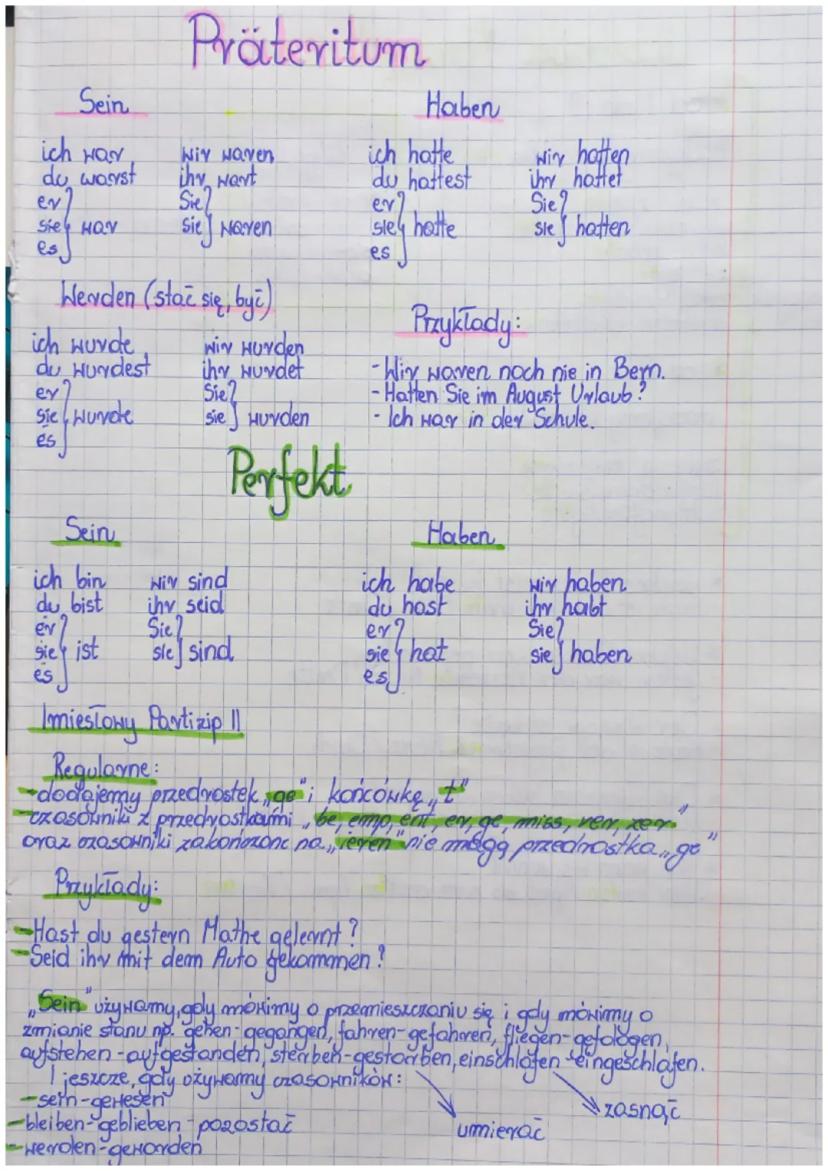 Präteritum
Sein
Haben
ich war wir waren
du warst ihr wart
er Sie
sie war sie waren
es
ich hatte wir hatten
du hattest ihr hattet
er Sie
sie hatte sie hatten
es
Werden (stać się, być)
ich wurde wir wurden
du wurdest ihr wurdet
er Sie
sie wurde sie wurden
es
Przykłady:
- Wir waren noch nie in Bern.
- Hatten Sie im August Urlaub?
- Ich war in der Schule.
Perfekt
Sein
Haben
ich bin wir sind
du bist ihr seid
er Sie
sie ist sie sind
es
ich habe wir haben
du hast ihr habt
er Sie
sie hat sie haben
es
Imiesłowy Partizip II
Regularne:
- dodajemy przedrostek „ge" i końcówkę „t"
- czasowniki z przedrostkami „be, emp, ent, er, ge, miss, ver, zer"
oraz czasowniki zakończone na „ieren" nie mogą przedrostka „ge"
Przykłady:
- Hast du gestern Mathe gelernt?
- Seid ihr mit dem Auto gekommen?
„Sein" używamy, gdy mówimy o przemieszczaniu się i gdy mówimy o
zmianie stanu np. gehen-gegangen, fahren-gefahren, fliegen-gefologen,
aufstehen-aufgestanden, sterben-gestorben, einschlafen-eingeschlafen.
I jeszcze, gdy używamy czasowników:
- sein-gewesen
- bleiben-geblieben - pozostać
- werden-geworden
umierać
zasnąć